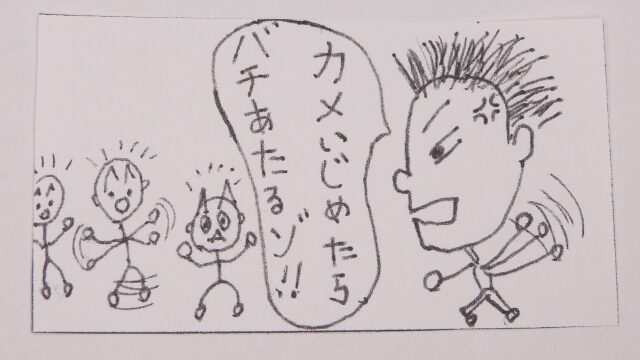 カメいじめたら
バチあたるゾ!!